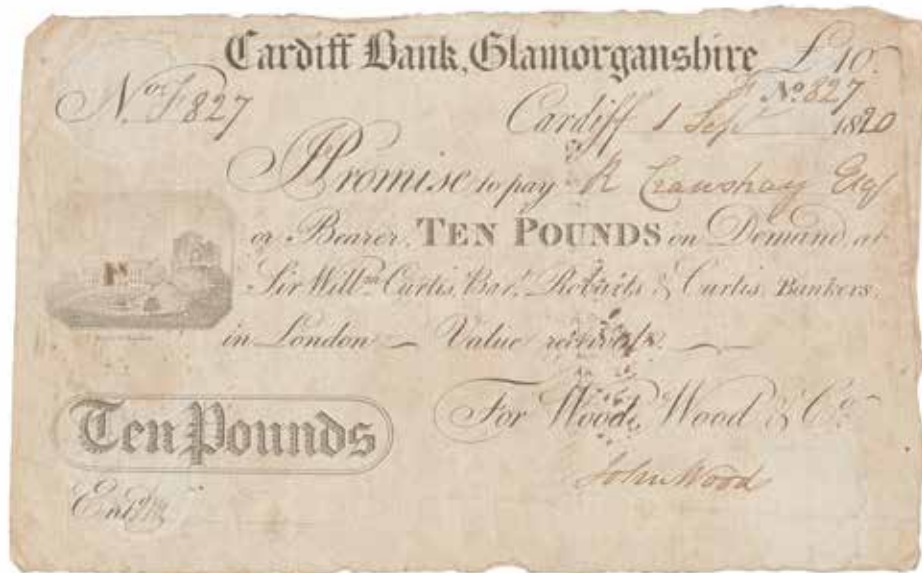 Cardiff Bank, Glamorganshire £10.
No. F 827 No. 827
Cardiff 1 Sepr 1820
I Promise to pay R Crawshay Esqr
or Bearer, TEN POUNDS on Demand, at
Sir Willm. Curtis, Bart. Robarts & Curtis, Bankers,
in London — Value received. —
Ten Pounds
For Wood, Wood & Co.
John Wood
Entd.